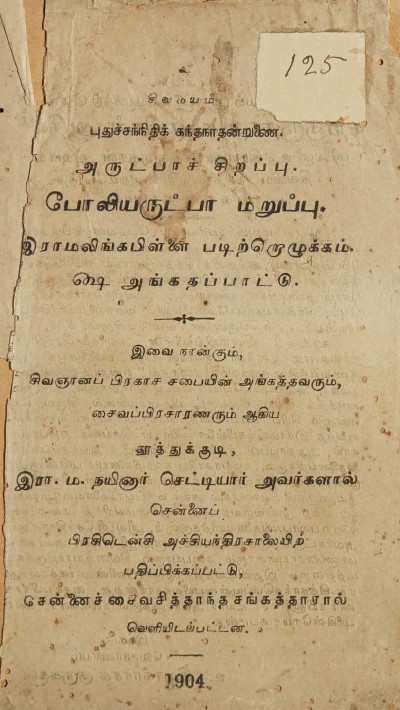 125
உ
சிவமயம்
புதுச்சந்நிதிக் கந்தநாதன்றுணை.
அருட்பாச் சிறப்பு.
போலியருட்பா மறுப்பு.
இராமலிங்கபிள்ளை படிற்றொழுக்கம்.
௸ அங்கதப்பாட்டு.
இவை நான்கும்,
சிவஞானப் பிரகாச சபையின் அங்கத்தவரும்,
சைவப்பிரசாரணரும் ஆகிய
தூத்துக்குடி,
இரா. ம. நயினார் செட்டியார் அவர்களால்
சென்னைப்
பிரசிடென்சி அச்சியந்திரசாலையிற்
பதிப்பிக்கப்பட்டு,
சென்னைச்சைவசித்தாந்தசங்கத்தாரால்
வெளியிடப்பட்டன.
1904.